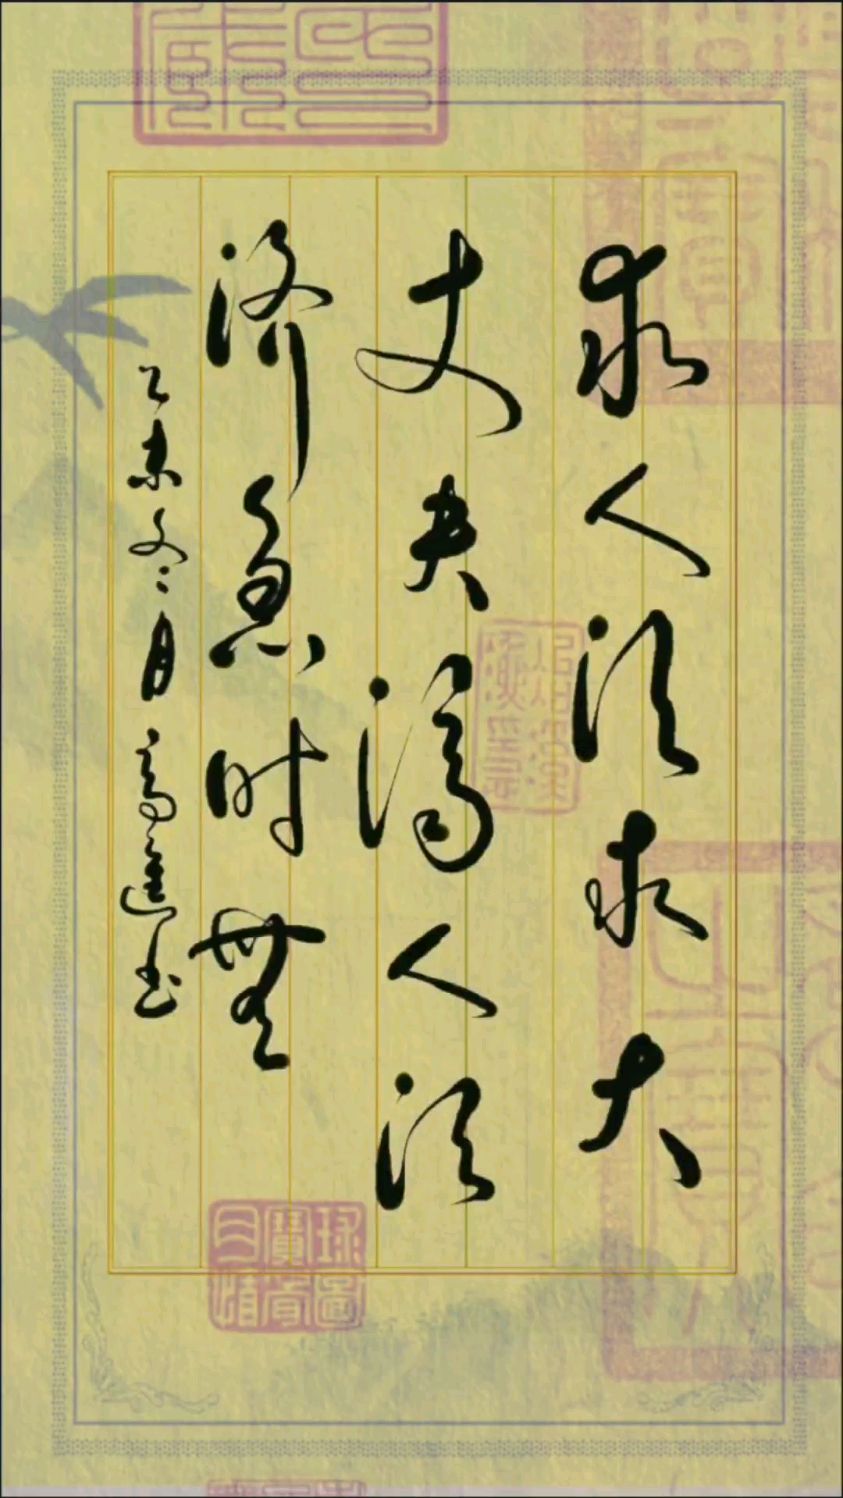 求人须求大
丈夫濟人须
济急时無
乙未冬月高书